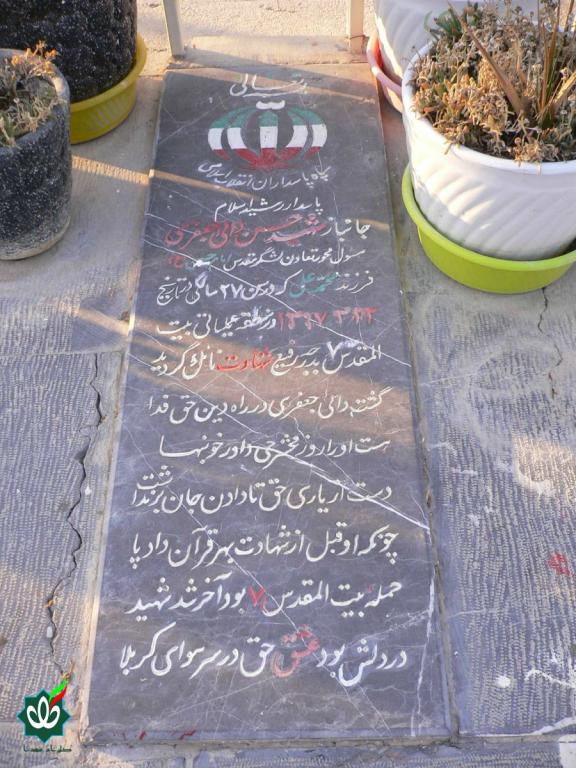 بسمه تعالی
سپاه پاسداران انقلاب اسلامی
پاسدار رشید اسلام
جانباز شهید حسن دائی جعفری
مسئول محور تعاون لشگر مقدس امام حسین ع
فرزند محمد علی که در سن ۲۷ سالگی در تاریخ
۱۳۶۷/۳/۲۳ در منطقه عملیاتی بیت
المقدس ۷ بدرجه رفیع شهادت نائل گردید
گشته دائی جعفری در راه دین حق فدا
هست او را روز محشر حق داور خونبها
دست از یاری حق تا دادن جان برنداشت
چونکه او قبل از شهادت بهر قرآن داد پا
حمله بیت المقدس ۷ بود آخر شد شهید
در دلش بود عشق حق در سر سوای کربلا